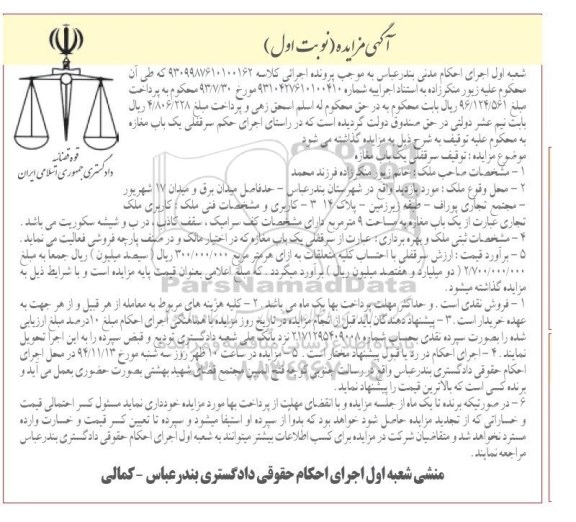 آگهی مزایده (نوبت اول)
قوه قضائیه
دادگستری جمهوری اسلامی ایران
شعبه اول اجرای احکام مدنی بندرعباس به موجب پرونده اجرائی کلاسه ۹۳۰۹۹۸۷۶۱۰۱۰۰۱۶۲ که طی آن
محکوم علیه زیور منکرزاده به استناد اجراییه شماره ۹۳۱۰۴۲۷۶۱۰۱۰۰۴۱۰ مورخ ۹۳/۷/۳۰ محکوم به پرداخت
مبلغ ۹۶/۱۲۴/۵۶۱ ریال بابت محکوم به در حق محکوم له اسلم اسحق زهی و پرداخت مبلغ ۴/۸۰۶/۲۲۸ ریال
بابت نیم عشر دولتی در حق صندوق دولت گردیده است که در راستای اجرای حکم سرقفلی یک باب مغازه
محکوم علیه توقیف به شرح ذیل به مزایده گذاشته می شود
موضوع مزایده : توقیف سرقفلی یک باب مغازه
۱ - مشخصات صاحب ملک : خانم زیور منکرزاده فرزند محمد
۲ - محل وقوع ملک : مورد بازدید واقع در شهرستان بندرعباس - حدفاصل میدان برق و میدان ۱۷ شهریور
- مجتمع تجاری پوراف - طبقه زیرزمین - پلاک ۱۴ ۳ - کاربری و مشخصات فنی ملک : کاربری ملک
تجاری عبارت از یک باب مغازه به مساحت ۹ مترمربع دارای مشخصات کف سرامیک ، سقف کاذب ، درب و شیشه سکوریت می باشد .
۴ - مشخصات ثبتی ملک و بهره برداری : عبارت از سرقفلی یک باب مغازه که در اختیار مالک و در صنف پارچه فروشی فعالیت می نماید .
۵ - برآورد قیمت : ارزش سرقفلی با احتساب کلیه متعلقات به ازای هر متر مربع ۳۰۰/۰۰۰/۰۰۰ ریال ( سیصد میلیون ) ریال جمعاً به مبلغ
۲/۷۰۰/۰۰۰/۰۰۰ ( دو میلیارد و هفتصد میلیون ریال ) برآورد میگردد . که مبلغ اعلامی بعنوان قیمت پایه مزایده است و با شرایط ذیل به
مزایده گذاشته میشود .
۱ - فروش نقدی است . و حداکثر مهلت پرداخت بها یک ماه می باشد . ۲ - کلیه هزینه های مربوط به معامله از هر قبیل و از هر جهت به
عهده خریدار است . ۳ - پیشنهاد دهندگان باید قبل از انجام مزایده در تاریخ روز مزایده با هماهنگی اجرای احکام مبلغ ۱۰ درصد مبلغ ارزیابی
شده را بصورت سپرده نقدی به حساب شماره نزد بانک ملی شعبه دادگستری تودیع و قبض سپرده را به این اجرا تحویل
نمایند . ۴ - اجرای احکام در رد یا قبول پیشنهاد مختار است . ۵ - مزایده در ساعت ۱۰ ظهر روز سه شنبه مورخ ۹۴/۱۱/۱۳ در محل اجرای
احکام حقوقی دادگستری بندرعباس واقع در رسالت جنوبی مجتمع قضائی شهید بهشتی بصورت حضوری بعمل می آید و
برنده کسی است که بالاترین قیمت را پیشنهاد نماید .
۶ - در صورتیکه برنده تا یک ماه از جلسه مزایده و با انقضای مهلت از پرداخت بها مورد مزایده خودداری نماید مسئول کسر احتمالی قیمت
و خساراتی که از تجدید مزایده حاصل شود خواهد بود که بدوا از سپرده او استیفا میشود و سپرده تا تعیین کسر قیمت و خسارت وارده
مسترد نخواهد شد و متقاضیان شرکت در مزایده برای کسب اطلاعات بیشتر میتوانند به شعبه اول اجرای احکام حقوقی دادگستری بندرعباس
مراجعه نمایند .
منشی شعبه اول اجرای احکام حقوقی دادگستری بندرعباس - کمالی
ParsNamadData